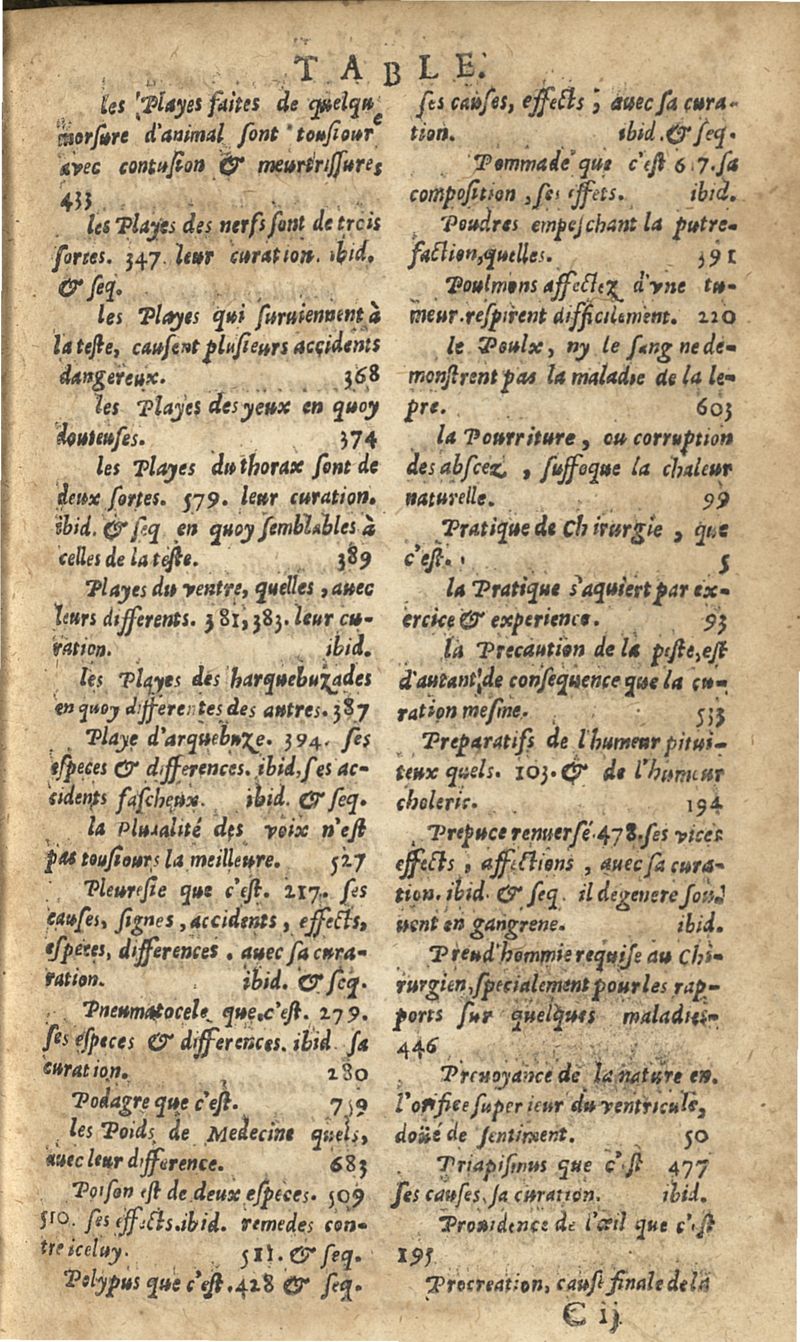 TABLE.
les Playes faites de quelque
morsure d'animal sont tousiour
avec contusion & meurtrissures
433
les Playes des nerfs sont de trois
sortes. 347. leur curation. ibid.
& seq.
les Playes qui suruiennent à
la teste, causent plusieurs accidents
dangereux. 368
les Playes des yeux en quoy
douteuses. 374
les Playes du thorax sont de
deux sortes. 579. leur curation.
ibid. & seq en quoy semblables à
celles de la teste. 389
Playes du ventre, quelles, auec
leurs differents. 381, 383. leur cu-
ration. ibid.
les Playes des harquebuzades
en quoy differentes des autres. 387
Playe d'arquebuze. 394. ses
especes & differences. ibid. ses ac-
cidents fascheux. ibid. & seq.
la Pluralité des voix n'est
pas tousiours la meilleure. 527
Pleuresie que c'est. 217. ses
causes, signes, accidents, effects,
especes, differences. auec sa cura-
ration. ibid. & seq.
Pneumatocele que c'est. 279.
ses especes & differences. ibid sa
curation. 280
Podagre que c'est. 759
les Poids de Medecine quels,
auec leur difference. 683
Poison est de deux especes. 509
510. ses effects. ibid. remedes con-
tre iceluy. 511. & seq.
Polypus que c'est. 428 & seq.
ses causes, effects, auec sa cura-
tion. ibid. & seq.
Pommade que c'est 6 7. sa
composition, ses effets. ibid.
Poudres empeschant la putre-
faction, quelles. 391
Poulmons affectez d'vne tu-
meur. respirent difficilement. 220
le Poulx, ny le sang ne de-
monstrent pas la maladie de la le-
pre. 603
la Pourriture, ou corruption
des abscez, suffoque la chaleur
naturelle. 99
Pratique de Chirurgie, que
c'est. 5
la Pratique s'aquiert par ex-
ercice & experience. 93
la Precaution de la peste, est
d'autant de consequence que la cu-
ration mesme. 533
Preparatifs de l'humeur pitui-
teux quels. 103. & de l'humeur
choleric. 194
Prepuce renuersé. 478. ses vices
effects, affections, auec sa cura-
tion. ibid. & seq. il degenere sou
uent en gangrene. ibid.
Preud'hommie requise au Chi-
rurgien, specialement pour les rap-
ports sur quelques maladies.
446
Preuoyance de la nature en.
l'orifice superieur du ventricule,
doüé de sentiment. 50
Priapismus que c'est 477
ses causes, sa curation. ibid.
Prouidence de l'œil que c'est
195
Procreation, cause finale de la
C ij